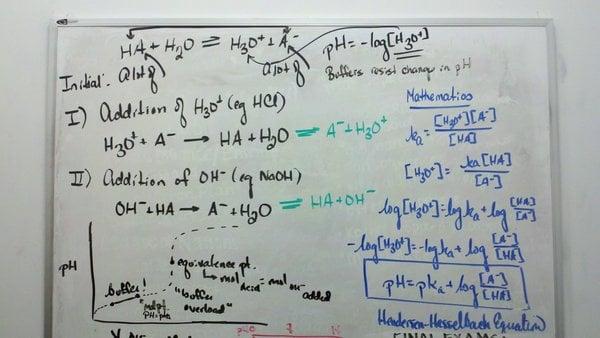 HA + H₂O ⇌ H₃O⁺ + A⁻
Initial: A lot of A lot of
pH = -log[H₃O⁺]
Buffers resist change in pH
I) Addition of H₃O⁺ (eg HCl)
H₃O⁺ + A⁻ → HA + H₂O ⇌ A⁻ + H₃O⁺
II) Addition of OH⁻ (eg NaOH)
OH⁻ + HA → A⁻ + H₂O ⇌ HA + OH⁻
pH
buffer!
equivalence pt.
mol acid = mol OH⁻ added
"buffer
overload"
Mathematics
ka = [H₃O⁺][A⁻]/[HA]
[H₃O⁺] = ka[HA]/[A⁻]
log[H₃O⁺] = log ka + log [HA]/[A⁻]
-log[H₃O⁺] = -log ka + log [A⁻]/[HA]
pH = pka + log [A⁻]/[HA]
Henderson-Hasselbach Equation
FINAL EXAMS